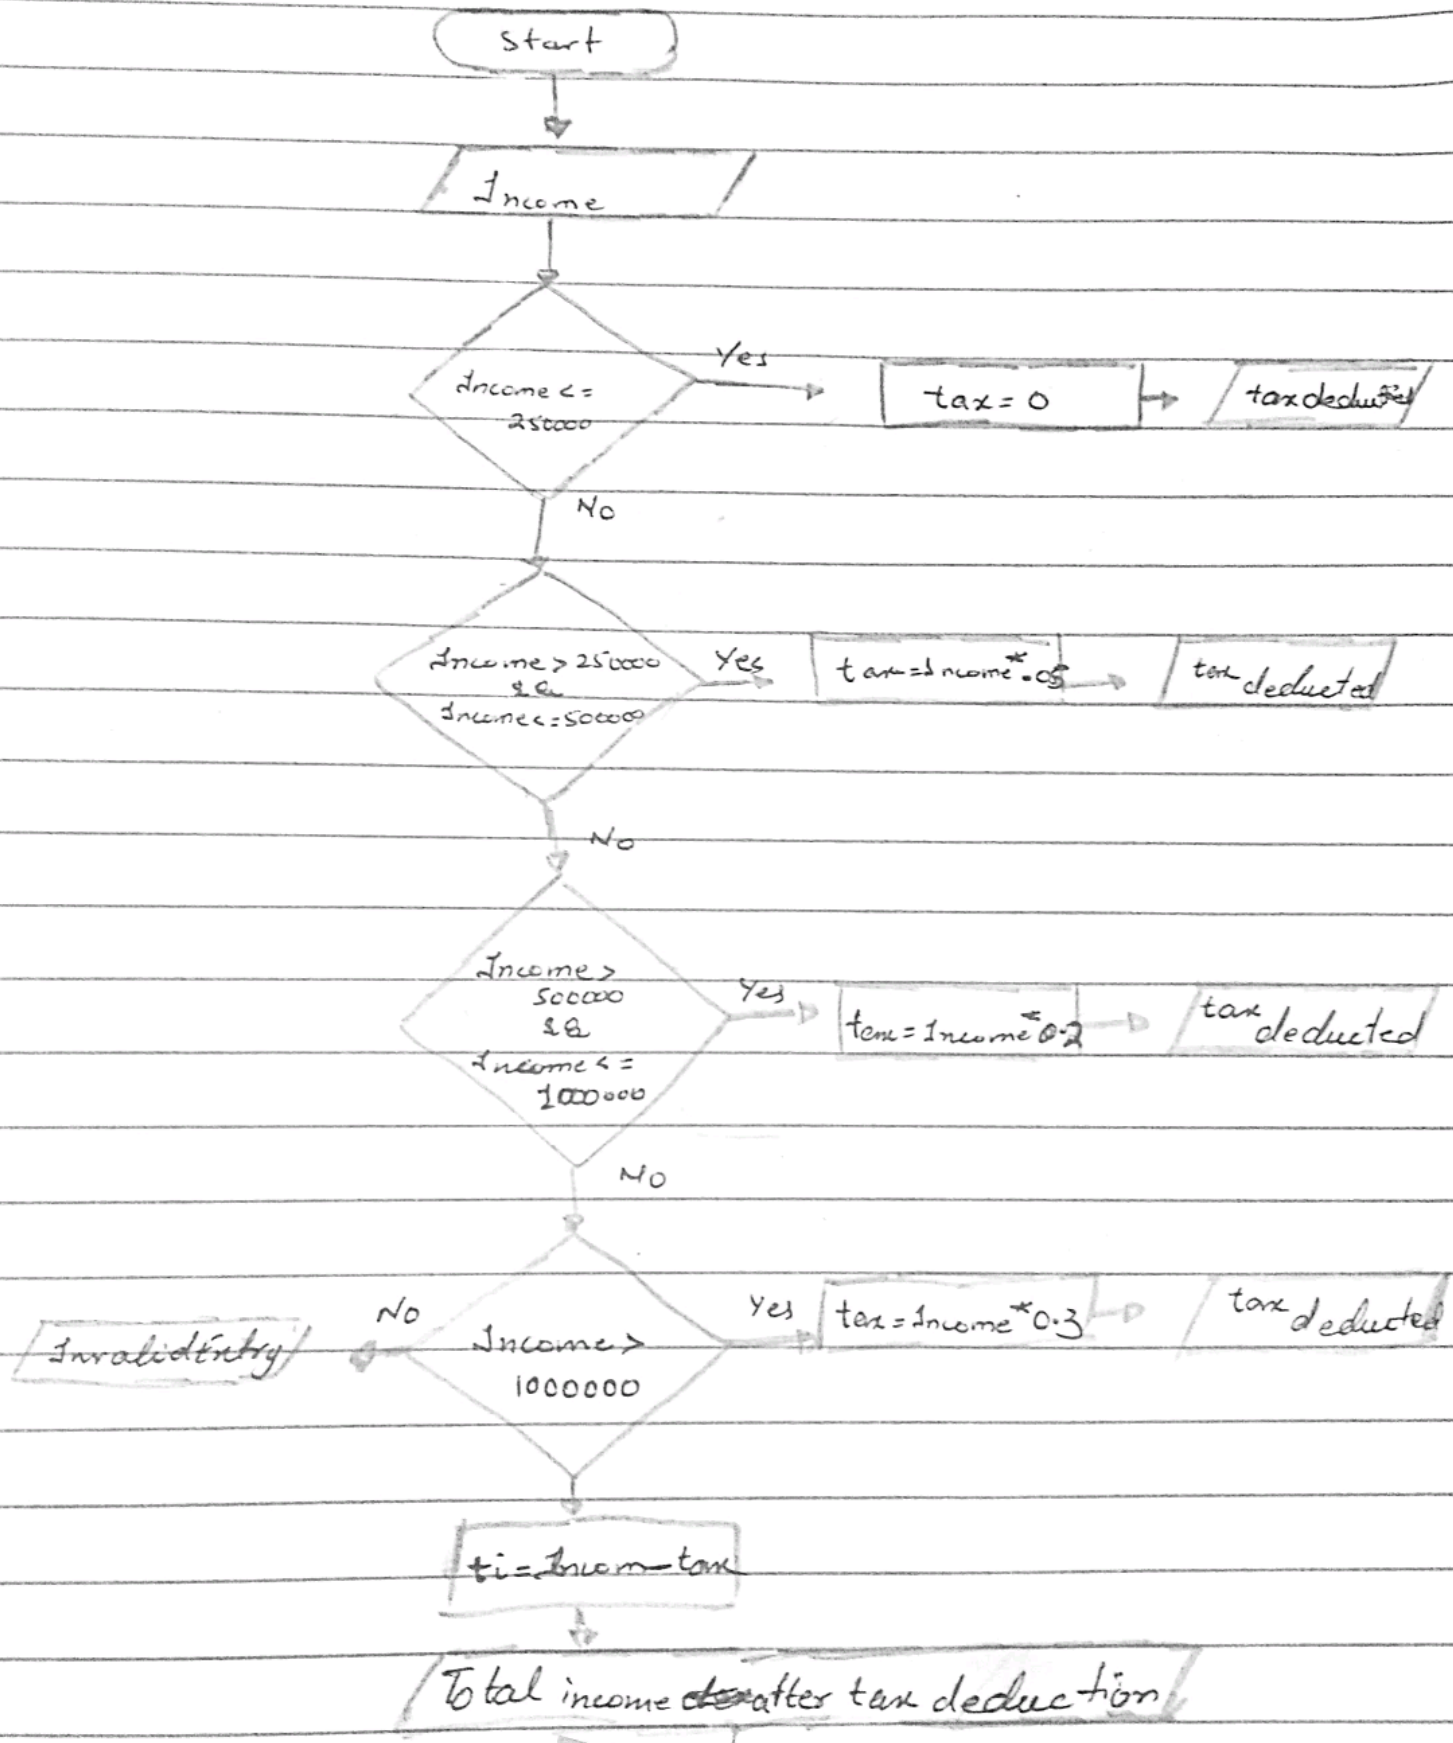 Start
Income
Income <=
250000
Yes
tax = 0
tax deducted
No
Income > 250000
&&
Income <= 500000
Yes
tax = Income * .05
tax
deducted
No
Income >
500000
&&
Income <=
1000000
Yes
tax = Income * 0.2
tax
deducted
No
Income >
1000000
Yes
tax = Income * 0.3
tax
deducted
No
Invalid Entry
ti = Incom - tax
Total income after tax deduction